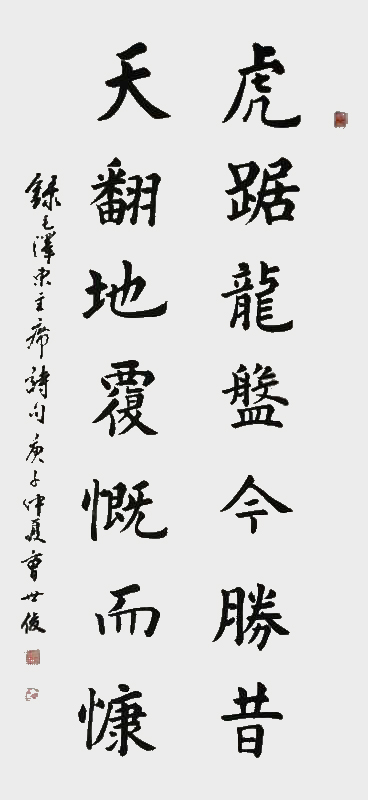 虎踞龍盤今勝昔
天翻地覆慨而慷
錄毛澤東主席詩句庚子仲夏曹世俊